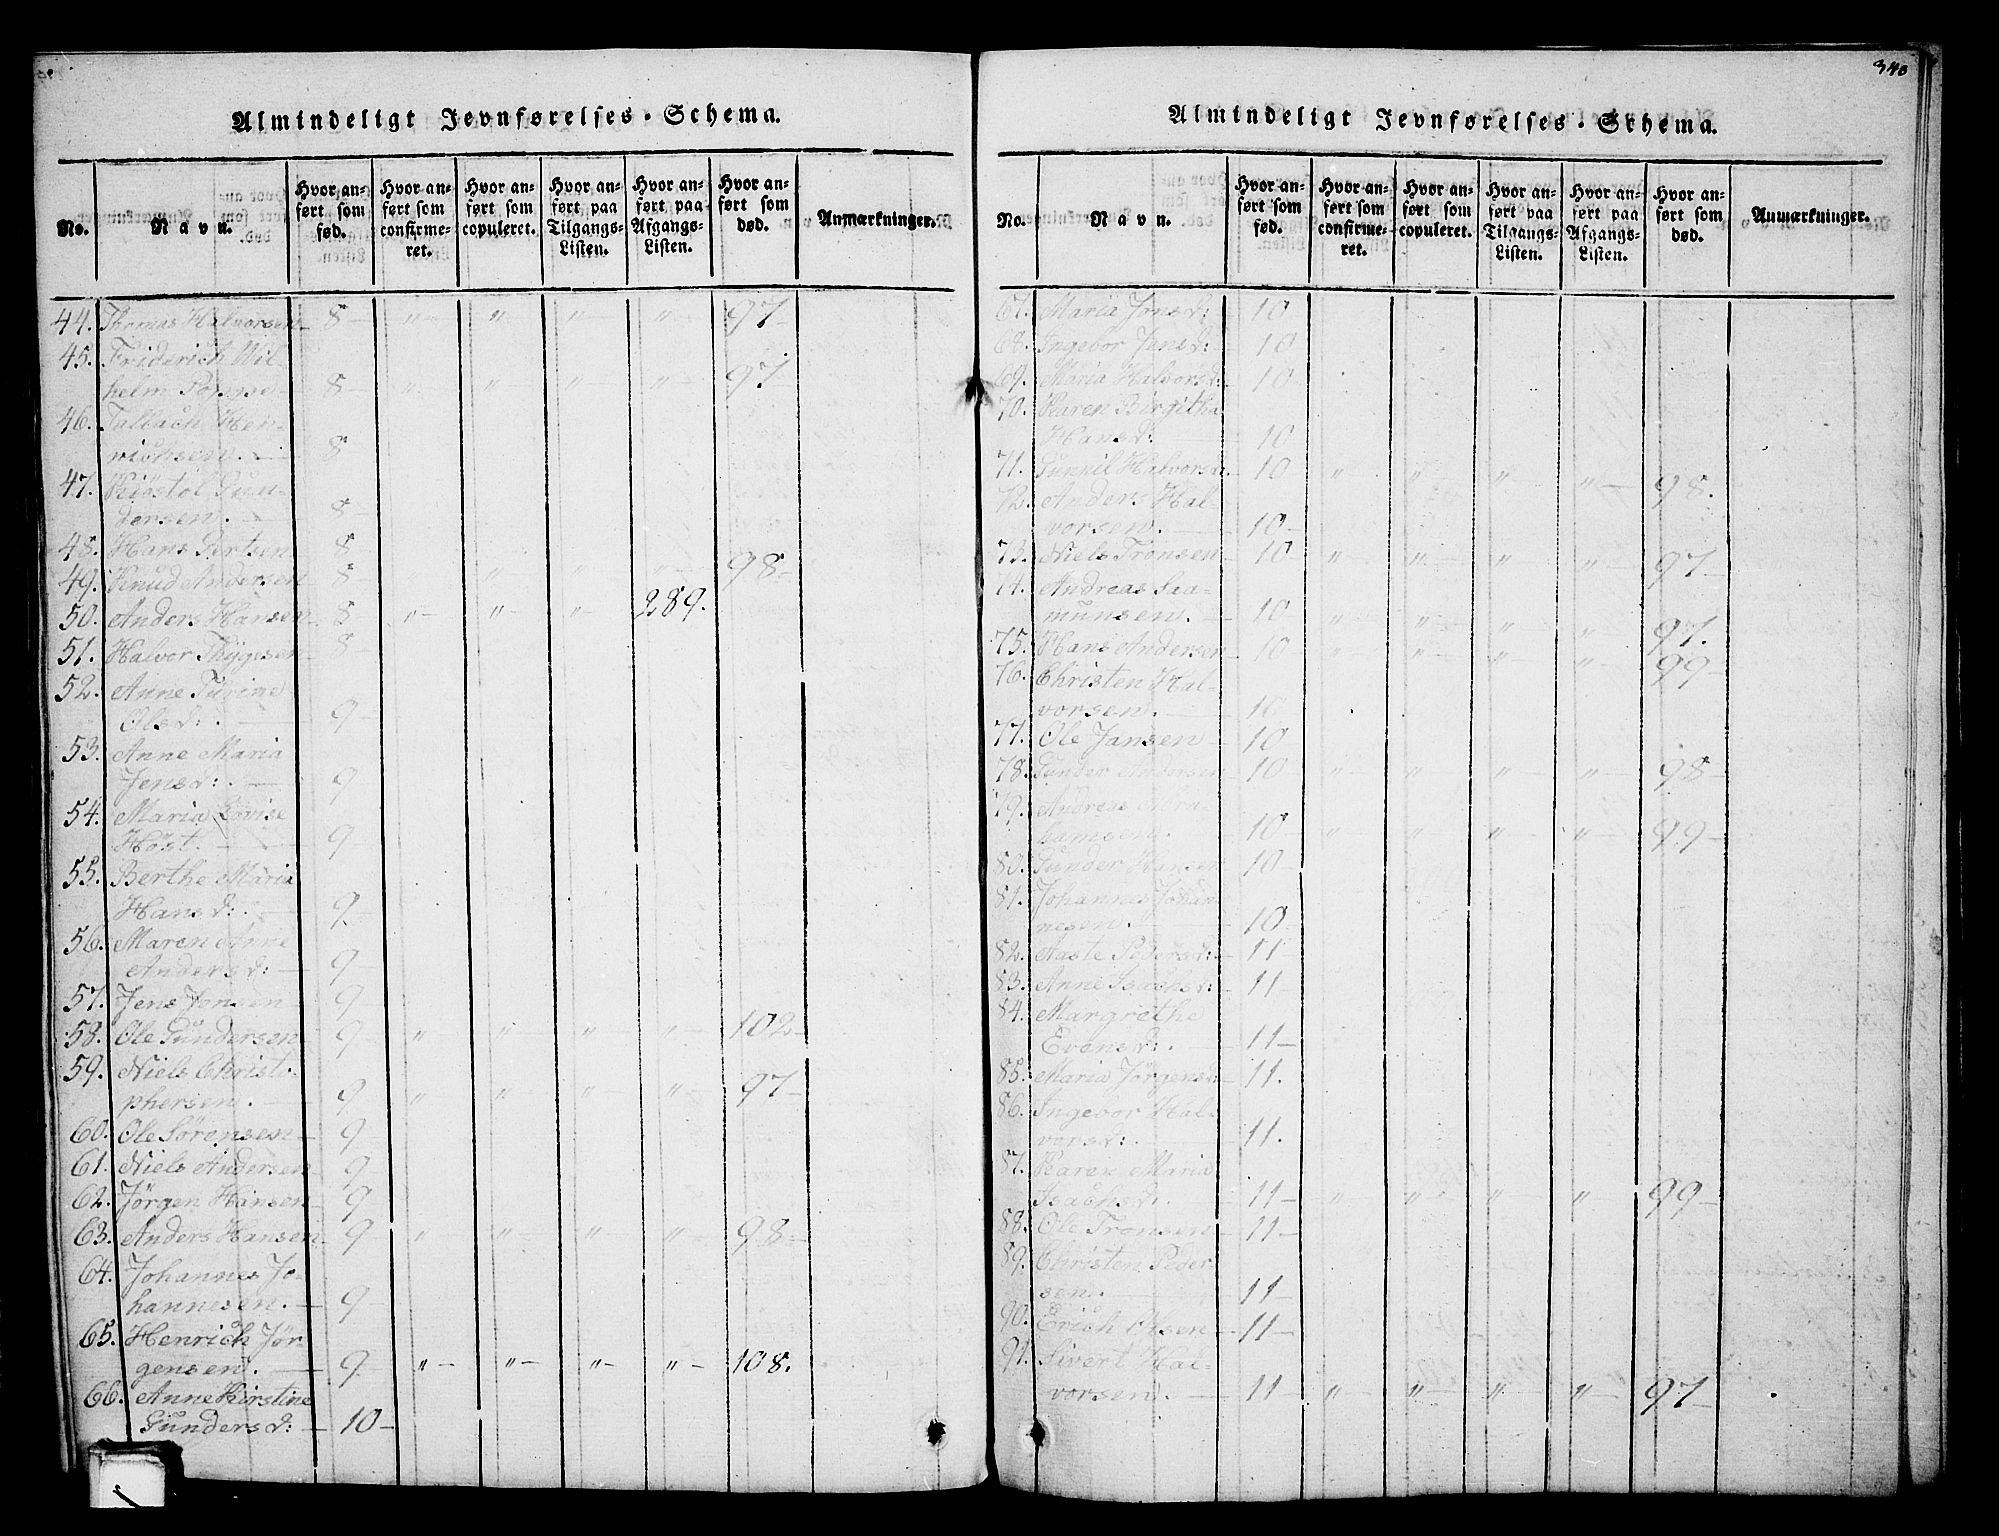 340
Almindeligt Jevnførelses-Schema.
No. Navn. Hvor anført som fød. Hvor anført som confirmeret. Hvor anført som copuleret. Hvor anført paa Tilgangs-Listen. Hvor anført paa Afgangs-Listen. Hvor anført som død. Anmærkninger.
44. Thomas Halvorsen 8 - " - " - " - " - 97.
45. Friderich Wil-
helm 8 - " - " - " - " - 97.
46. Hen-
richsen. - 8 -
47. Kiöstol Gun-
dersen. - 8 -
48. Hans Bertsen 8
49. Knud Andersen 8 - " - " - " - " - 98 -
50. Anders Hansen 8 " - " - " - 289.
51. Halvor Thygesen 8 -
52. Anne
Olsd: - 9 -
53. Anne Maria
Jensd: - 9
54. Maria Lovise
Höst. - 9 -
55. Berthe Maria
Hansd: - 9.
56. Maren Anne
Andersd: - 9 -
57. Jens Jonsen 9 -
58. Ole Gundersen 9 - " " - " - " - 102 -
59. Niels Christo-
phersen. - 9 " - " - " - " - 97 -
60. Ole Sörensen - 9 -
61. Niels Andersen 9 -
62. Jörgen Hansen - 9
63. Anders Hansen 9 " - " - " - " - 98 -
64. Johannes Jo-
hannesen. - 9 -
65. Henrich Jör-
gensen. - 9. " - " - " - " - 108.
66. Anne Kirstine
Gundersd: - 10 -
Almindeligt Jevnførelses-Schema.
No. Navn. Hvor anført som fød. Hvor anført som confirmeret. Hvor anført som copuleret. Hvor anført paa Tilgangs-Listen. Hvor anført paa Afgangs-Listen. Hvor anført som død. Anmærkninger.
67. Maria Jonsd: - 10
68. Ingebor Jensd: - 10
69. Maria Halvorsd: 10 -
70. Karen Birgitha
Hansd: - 10
71. Gunnil Halvorsd: 10 " - " - " - " - 98.
72. Anders Hal-
vorsen. - 10 -
73. Niels Tronsen - 10 " - " - " - " - 97 -
74. Andreas Saa-
munsen. - 10 " - " - " - " - 97.
75. Hans Andersen - 10 " - " - " - " - 99 -
76. Christen Hal-
vorsen. - 10
77. Ole Jansen - 10
78. Gunder Andersen - 10 " - " - " - " - 98 -
79. Andreas Abra-
hamsen. - 10 " - " - " - " - 99 -
80. Gunder Hansen 10 -
81. Johannes Johan-
nesen. - 10
82. Aaste Pedersd: - 11 -
83. Anne Isachsd: - 11 -
84. Margrethe
Evensd: - 11 -
85. Maria Jörgensd: 11.
86. Ingebor Hal-
vorsd: - 11.
87. Karen Maria
Isachsd: - 11 - " - " - " - " - 99 -
88. Ole Tronsen - 11 -
89. Christen Peder-
sen. - 11 -
90. Erich Olsen - 11 -
91. Sivert Hal-
vorsen. - 11 - " - " - " - " - 97 -